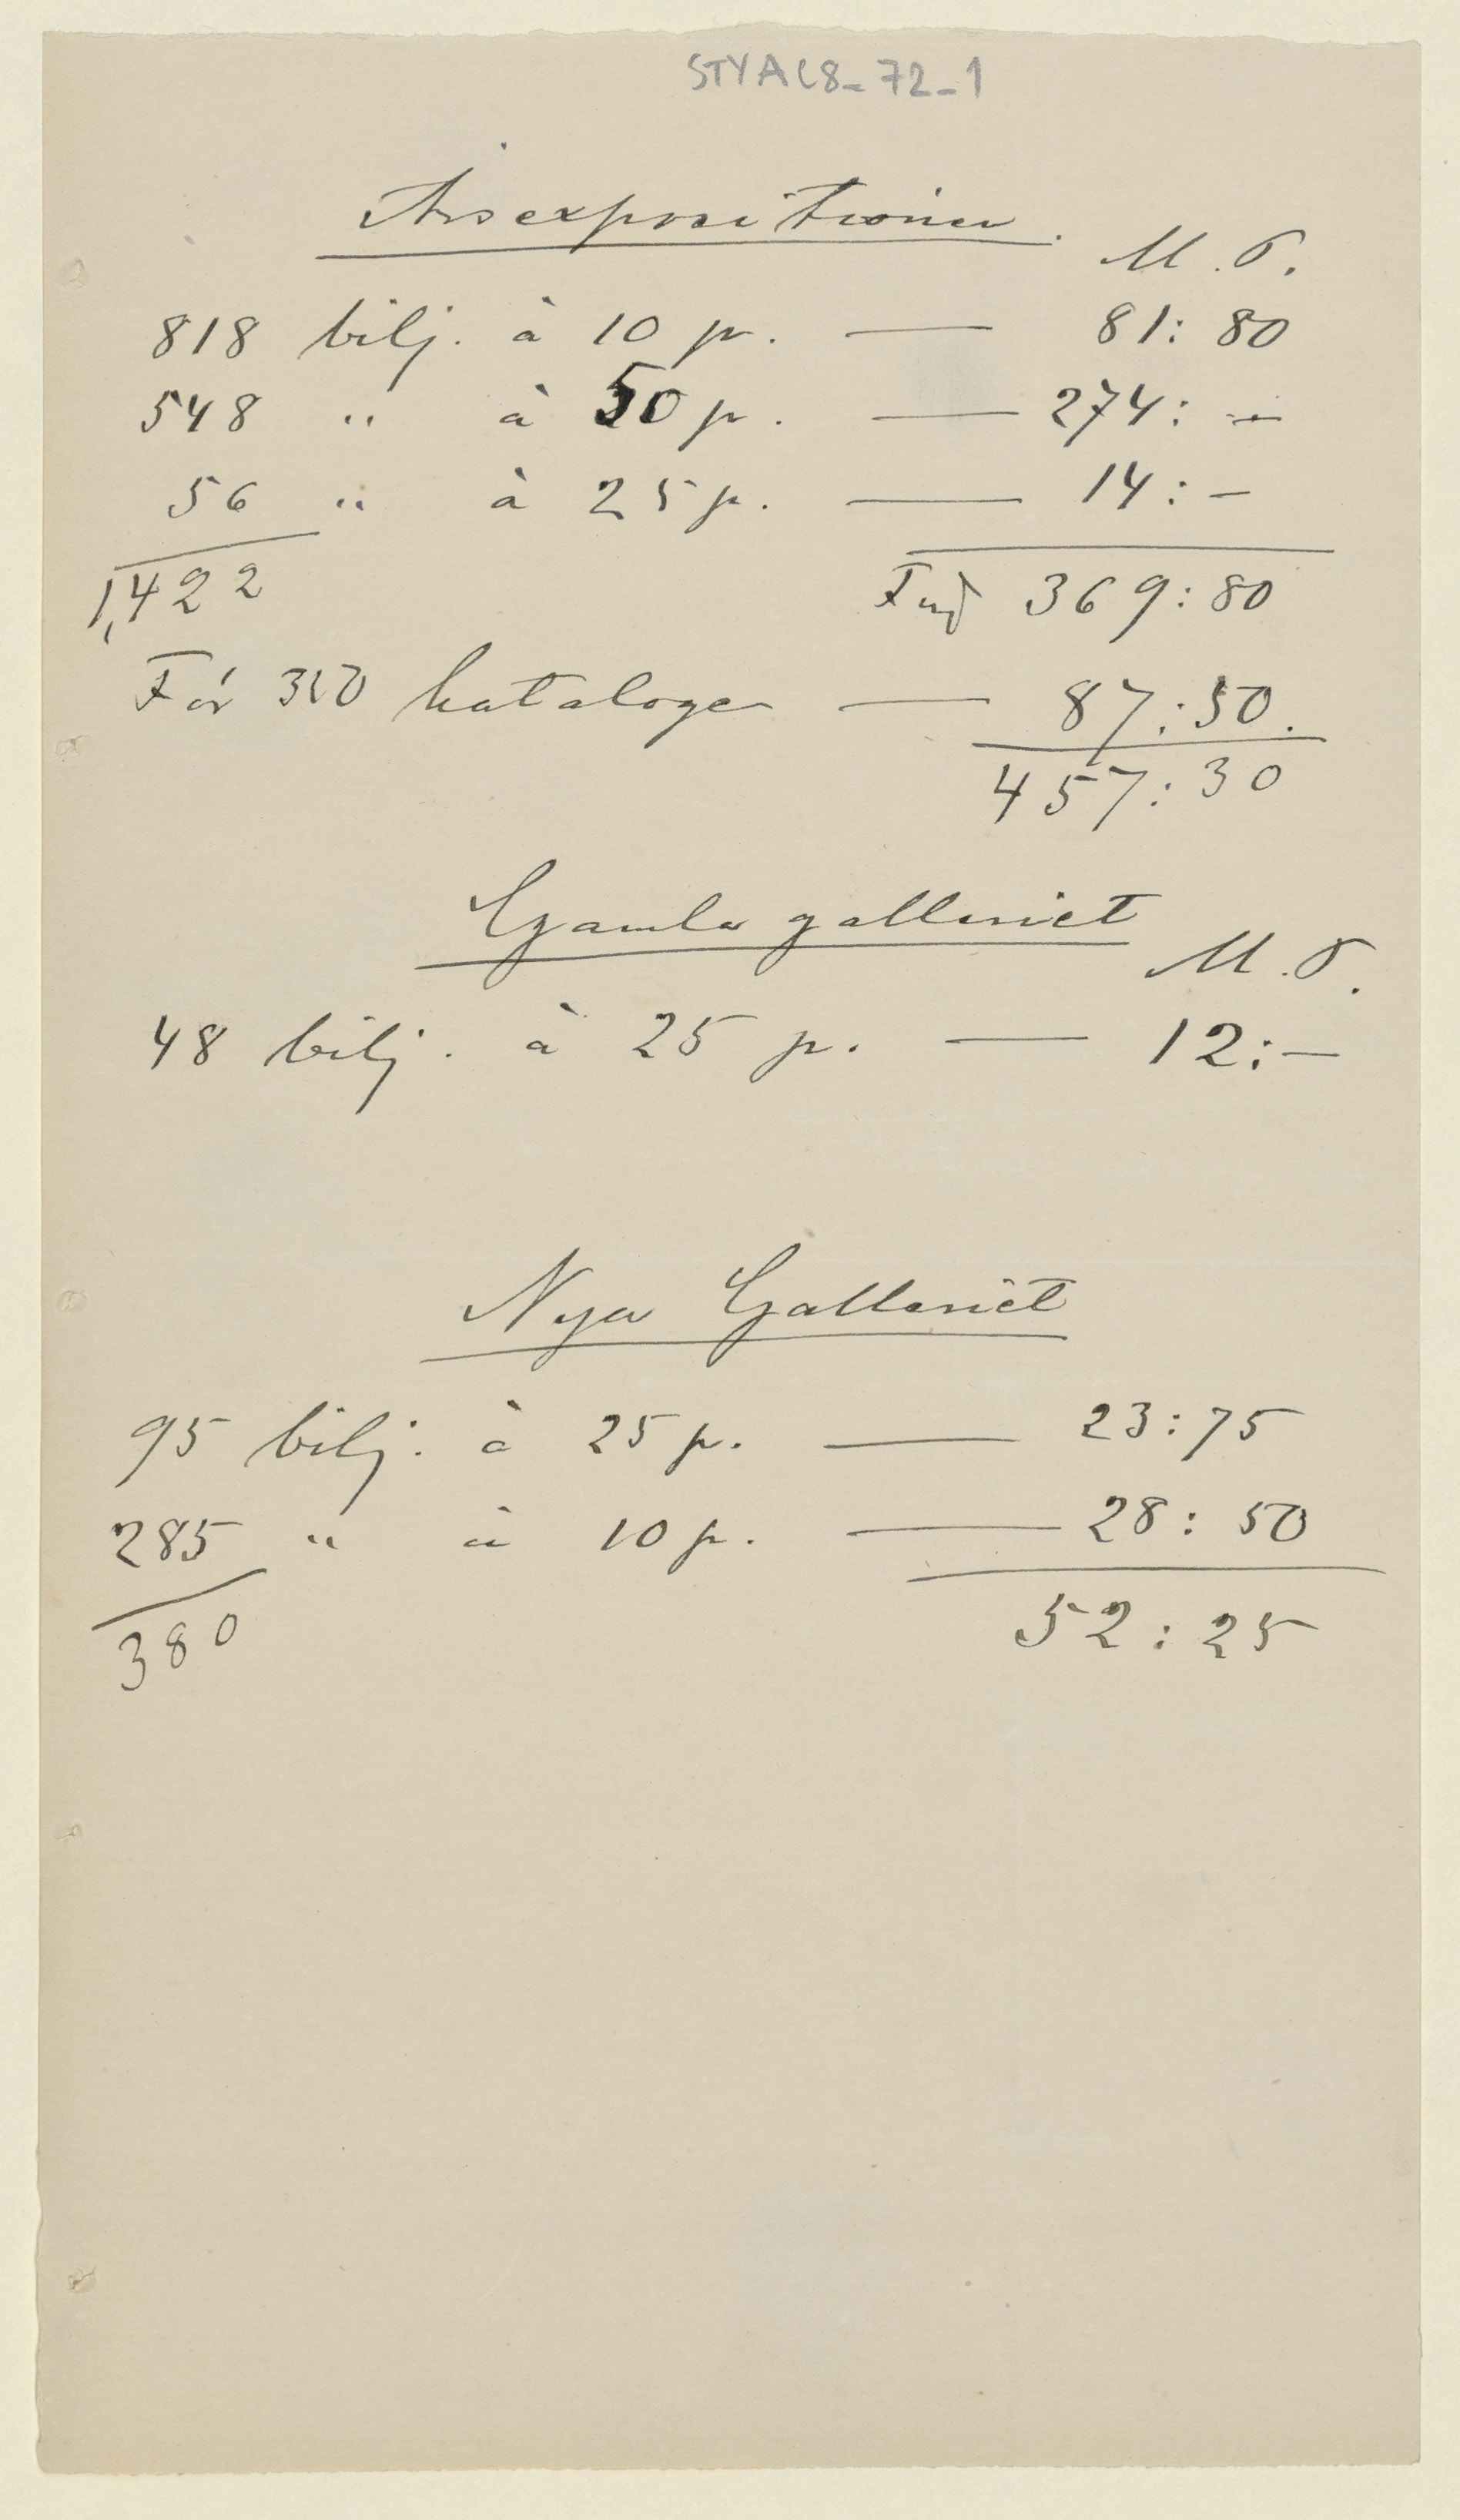 STYAC8-72-1
Årsexpositionen.
M. P.
818 bilj. à 10 p. — 81: 80
548 " à 50 p. — 274: —
56 " à 25 p. — 14: —
1,422 369: 80
För 350 kataloger — 87:50.
457: 30
Gamla galleriet
M. P.
48 bilj. à 25 p. — 12: —
Nya Galleriet
95 bilj. à 25 p. — 23:75
285 " à 10 p. — 28: 50
380 52: 25